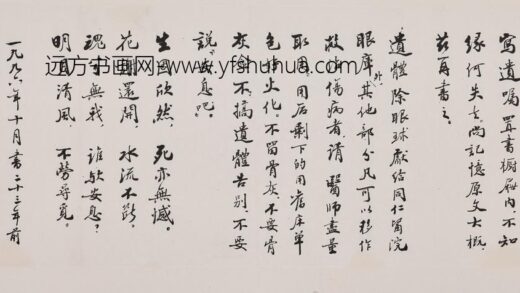 寫遺囑置書櫥屜内，不知
緣何失去，尚記憶原文大概，
茲再書之。
遺體除眼球獻給同仁醫院
眼庫外，其他部分凡可以移作
救傷病者，請醫師盡量
取用，用后剩下的用舊床單
包好火化。不留骨灰，不要骨
灰盒，不搞遺體告别，不要
說安息吧。
生固欣然，死亦無憾。
花落還開，水流不斷。
魂兮無我，誰欤安息？
明月清風，不勞尋覓。
一九九六年十月書二十三年前
远方书画网-www.yfshuhua.com